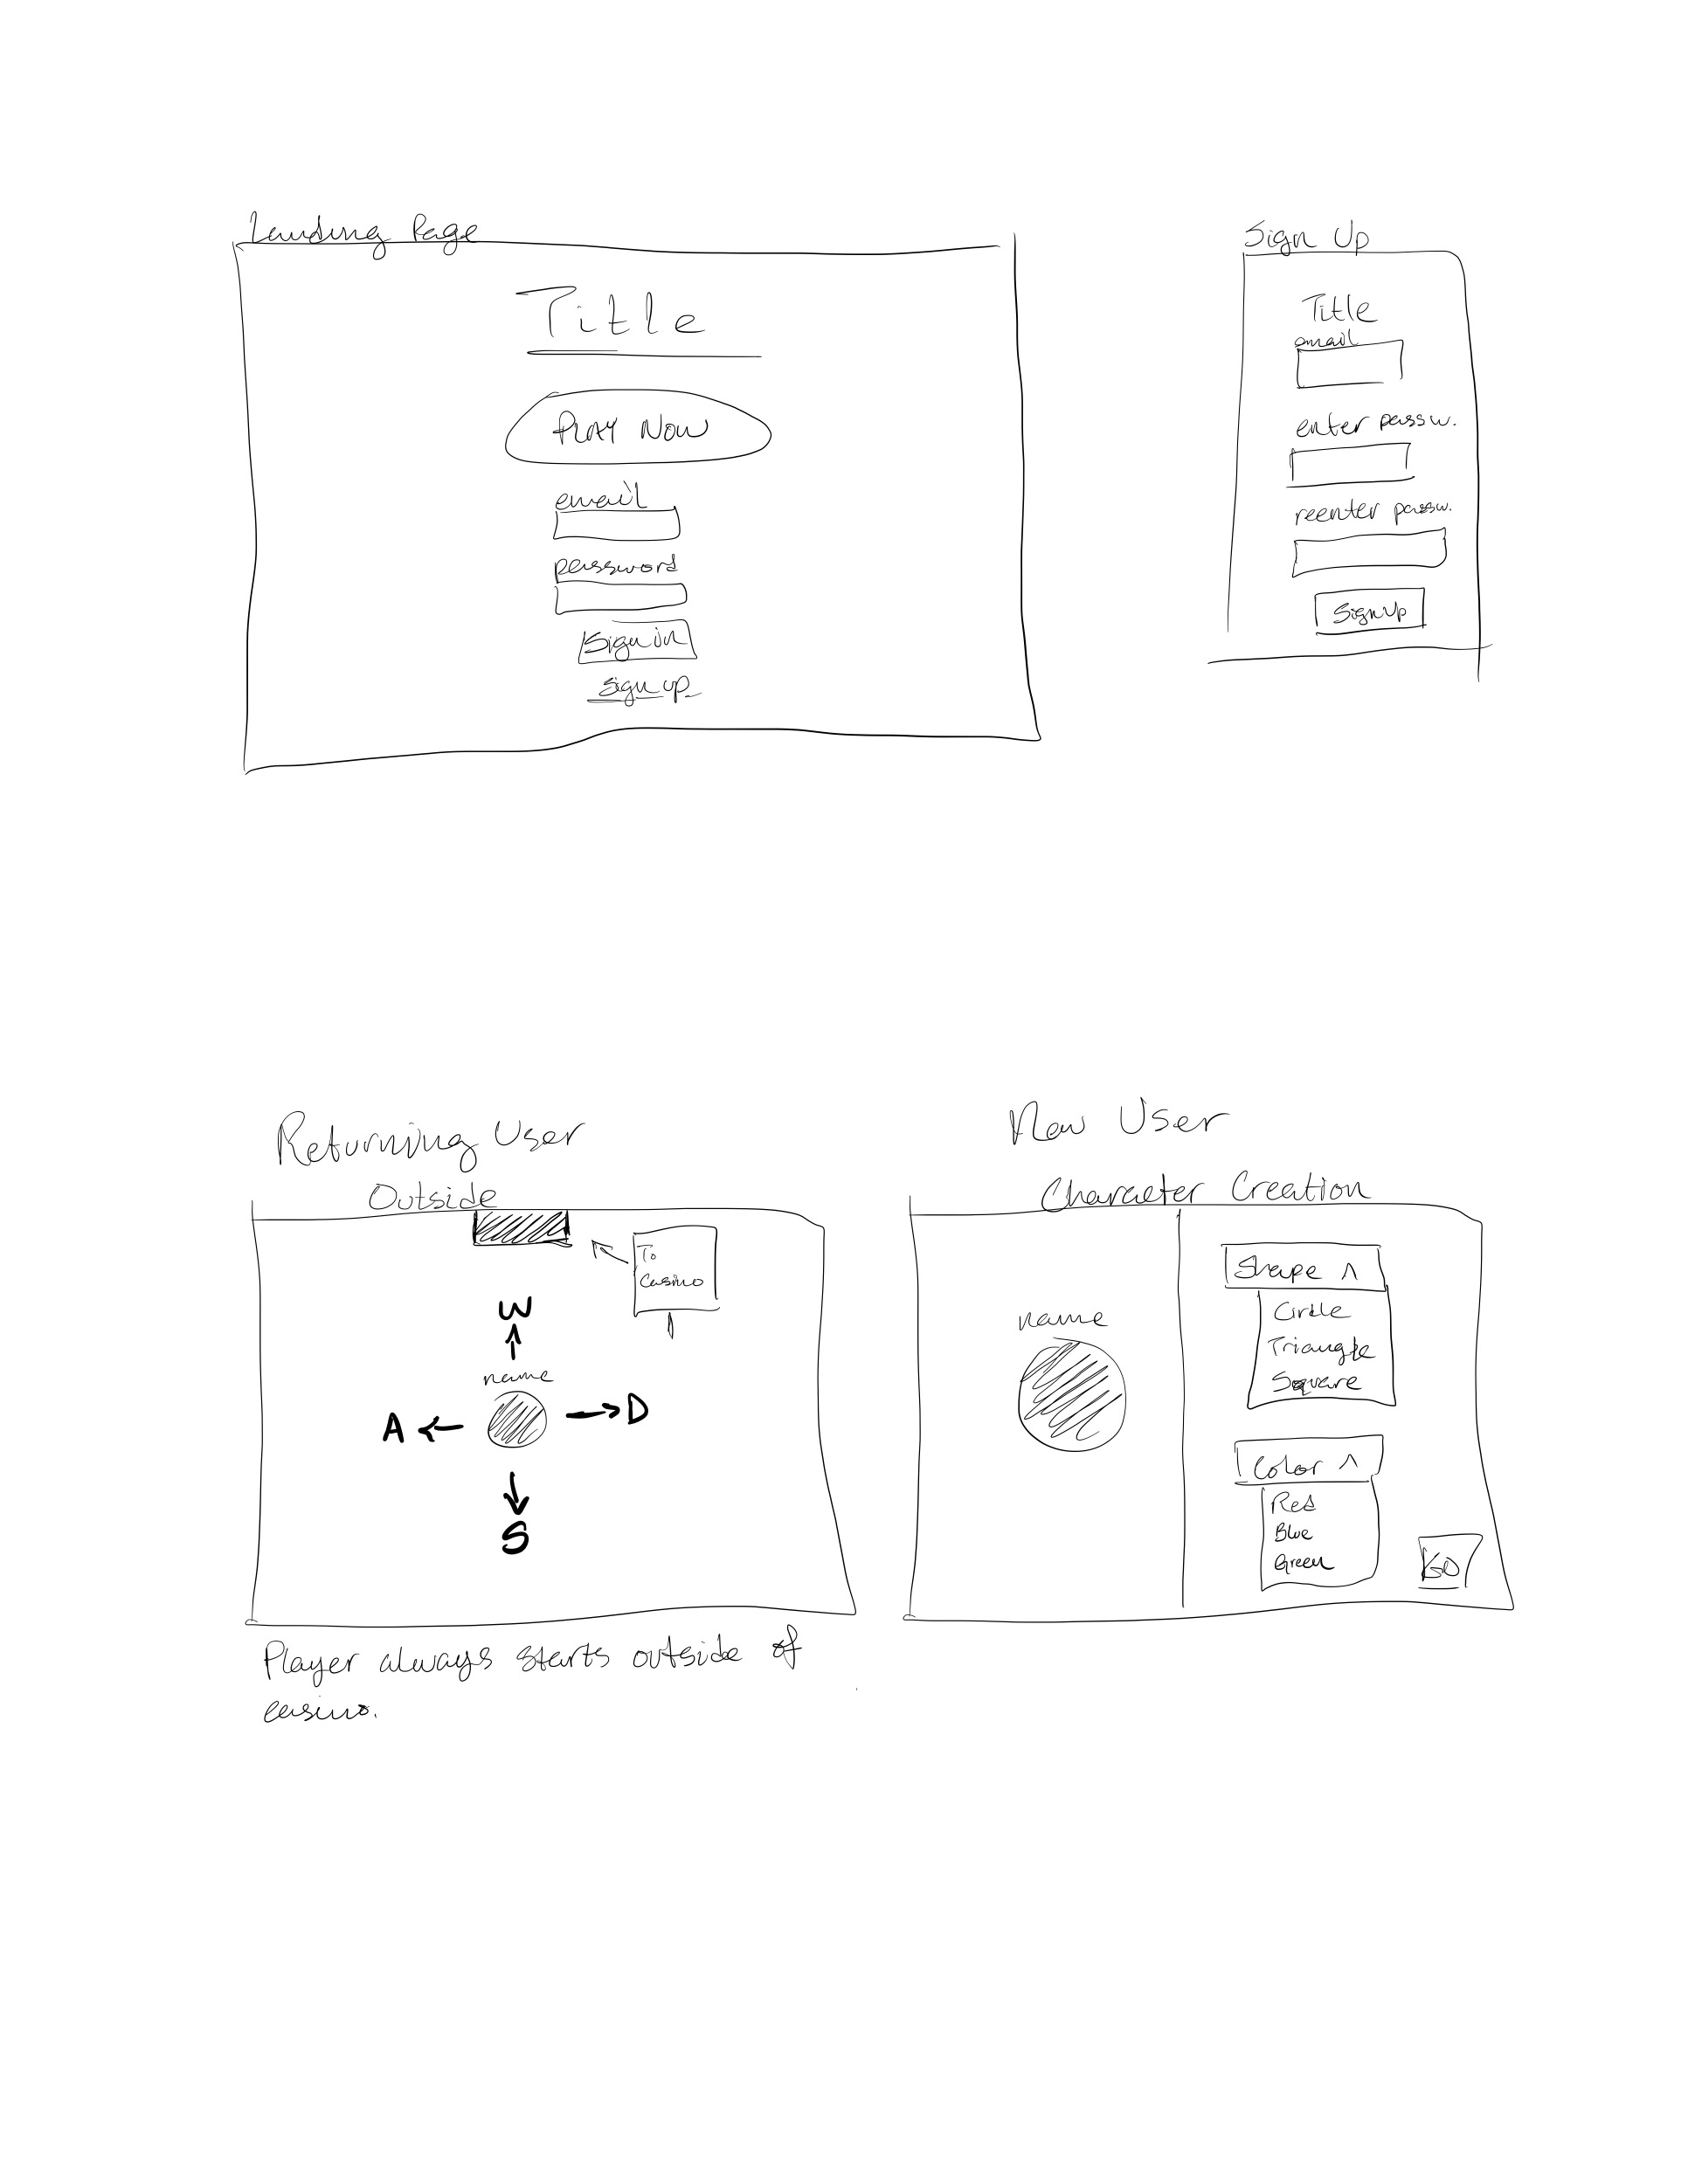 Landing Page
Title
PLAY NOW
email
password
Sign in
Sign up
Sign Up
Title
email
enter passw.
reenter passw.
Sign Up
Returning User
Outside
To
Casino
W
name
A
D
S
Player always starts outside of
casino.
New User
Character Creation
name
Shape ^
Circle
Triangle
Square
Color ^
Red
Blue
Green
GO